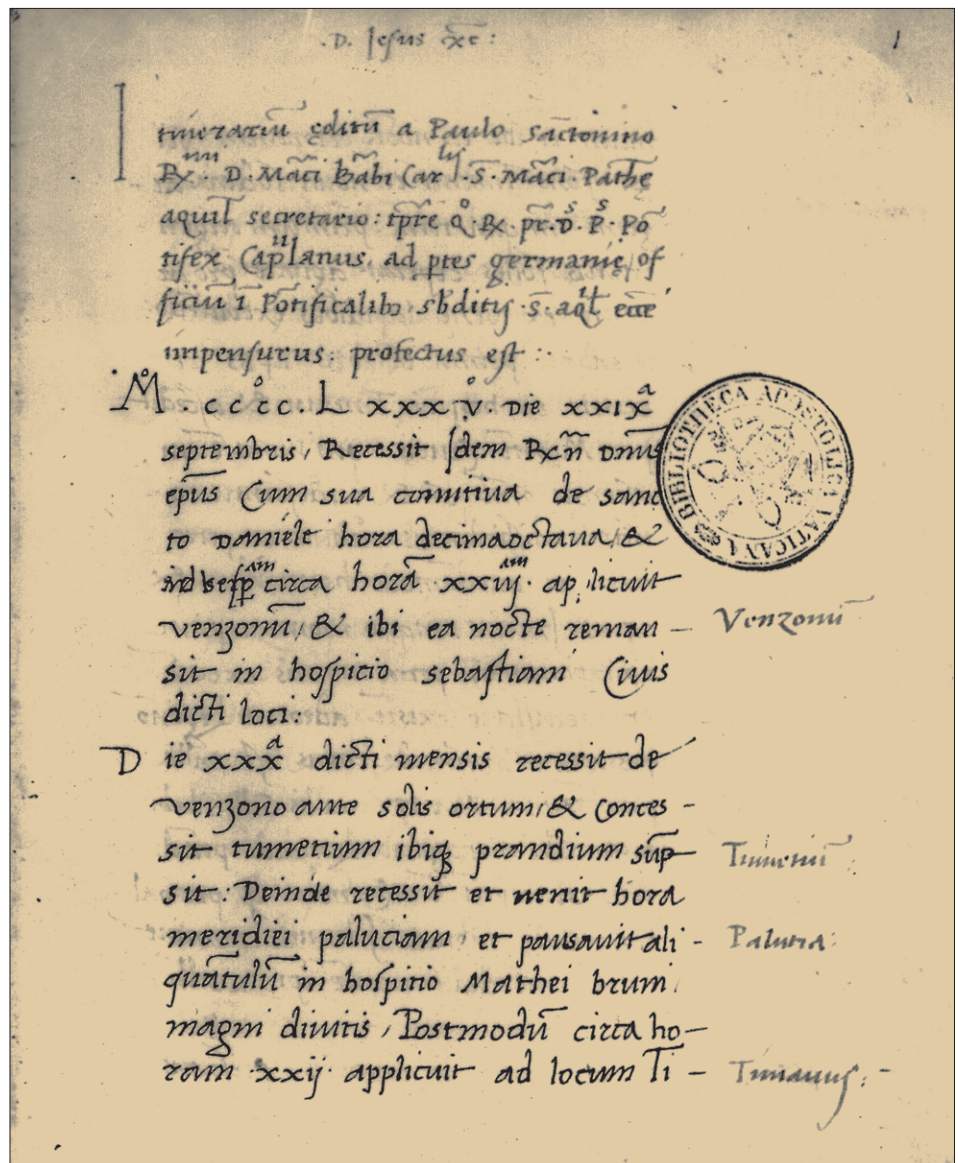 .D. Jesus c̄x̄c̄ :
1
Itinerariū ęditū a Paulo Sāctonino
R̄x. D. Māci Bābi Car^lis. S. Māci. Pāthę
aquil̄ secretario: tp̄re q̊. R̄x. pr̄. D^s. P^s. Pō
tifex Cap^llanus. ad ptes germanię, of
ficiū ī Pōtificalib; sb̄ditis S. aql̄. ecc̄e
impensurus: profectus est :.
M°. cccc°. L xxx v°. Die xxıx^a
septembris, Recessit Idem Rx̄n̄ Dn̄us
ep̄us Cum sua comitiua de sanc
to Daniele hora decimaoctaua, &
circa horā xxiii^am. applicuit
venzoniū, & ibi ea nocte reman –
sit in hospicio sebastiani Ciuis
dicti loci:
Die xxx^a dicti mensis recessit de
venzono ante solis ortum, & Conces –
sit tumetium ibiq; prandium sūp
sit: Deinde recessit et uenit hora
meridiei paluciam, et pausauit ali –
quātulū in hospitio Mathei bruni
magni diuitis, Postmodū circa ho–
ram xxij applicuit ad locum Ti –
Venzoniū
Tumetiū :
Palutia:
Timauus: –
BIBLIOTHECA APOSTOLICA VATICANA